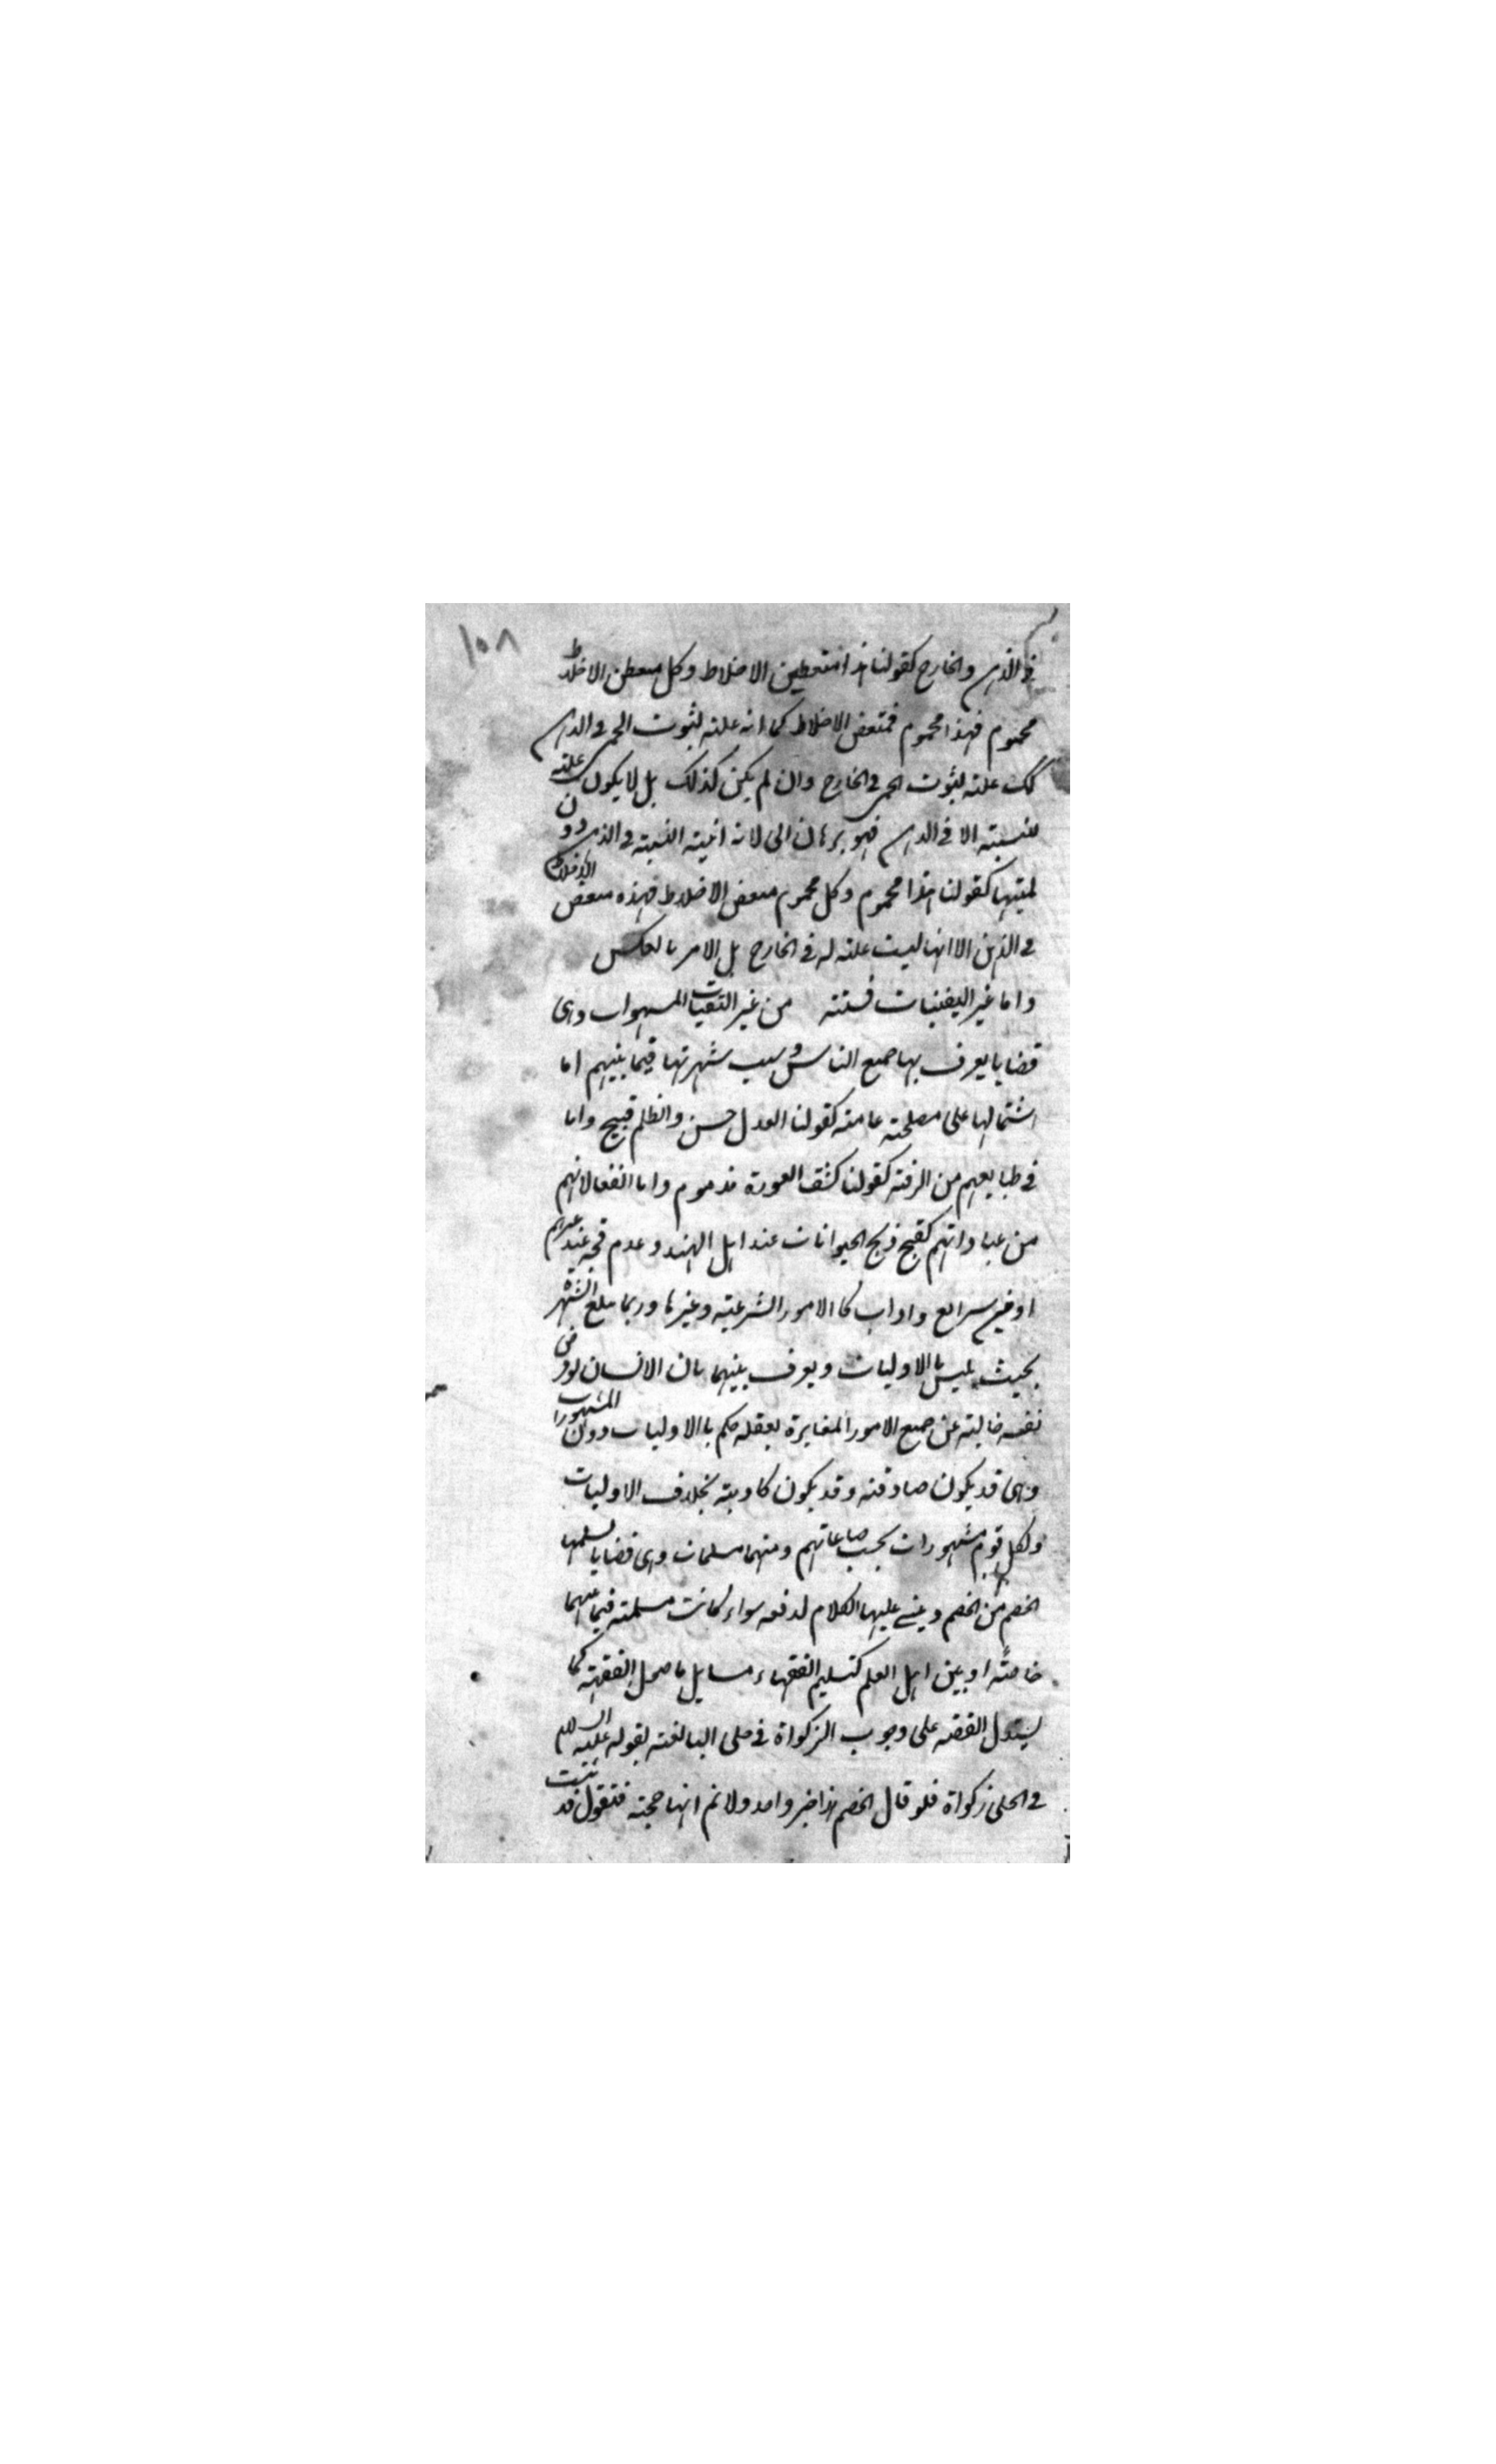 ١٠٨
فى الذهن والخارج كقولنا هذا متعطن الاخلاط وكل متعطن الاخلاط
محموم فهذا محموم فمتعفن الاخلاط كما انه علته لثبوت الحمى فى الذهن
كك علته لثبوت الحمى فى الخارج وان لم يكن كذلك بل لا يكون علته
للنسبته الا فى الذهن فهو برهان انى لانه انيته النسبته فى الذهن دون
لميتها كقولنا هذا محموم وكل محموم متعفن الاخلاط فهذه متعفن الاخلاط
فى الذهن الا انها ليست علته له فى الخارج بل الامر بالعكس
واما غير اليقينيات فستته من غير اليقينيات المشهورات وهى
قضايا يعرف بها جميع الناس وسبب شهرتها فيما بينهم اما
اشتمالها على مصلحته عامته كقولنا العدل حسن والظلم قبيح واما
فى طبايعهم من الرقته كقولنا كشف العورة مذموم واما انفعالاتهم
من عاداتهم كقبح ذبح الحيوانات عند اهل الهند وعدم قبحه عند غيرهم
او من شرايع واداب كا الامور الشرعيته وغيرها وربما يبلغ الشهرة
بحيث يلتبس باالاوليات ويعرف بينهما بان الانسان لو فرض
نفسه خاليته عن جميع الامور المغايرة لعقله حكم باالاوليات دون المشهورات
وهى قد يكون صادقته وقد يكون كاذبته بخلاف الاوليات
ولكل قوم مشهورات بحسب صناعاتهم ومنها مسلمات وهى قضايا يسلمها
الخصم من الخصم ويبنى عليها الكلام لدفعه سواء كانت مسلمته فيما بينهما
خاصتًه او بين اهل العلم كتسليم الفقهاء مسايل ما صحل الفقهته كما
يستدل الفقته على وجوب الزكواة فى حلى البالغته لقوله عليه السلام
فى الحلى زكواة فلو قال الخصم هذا خبر واحد ولا نم انها حجته فنقول قد ثبت